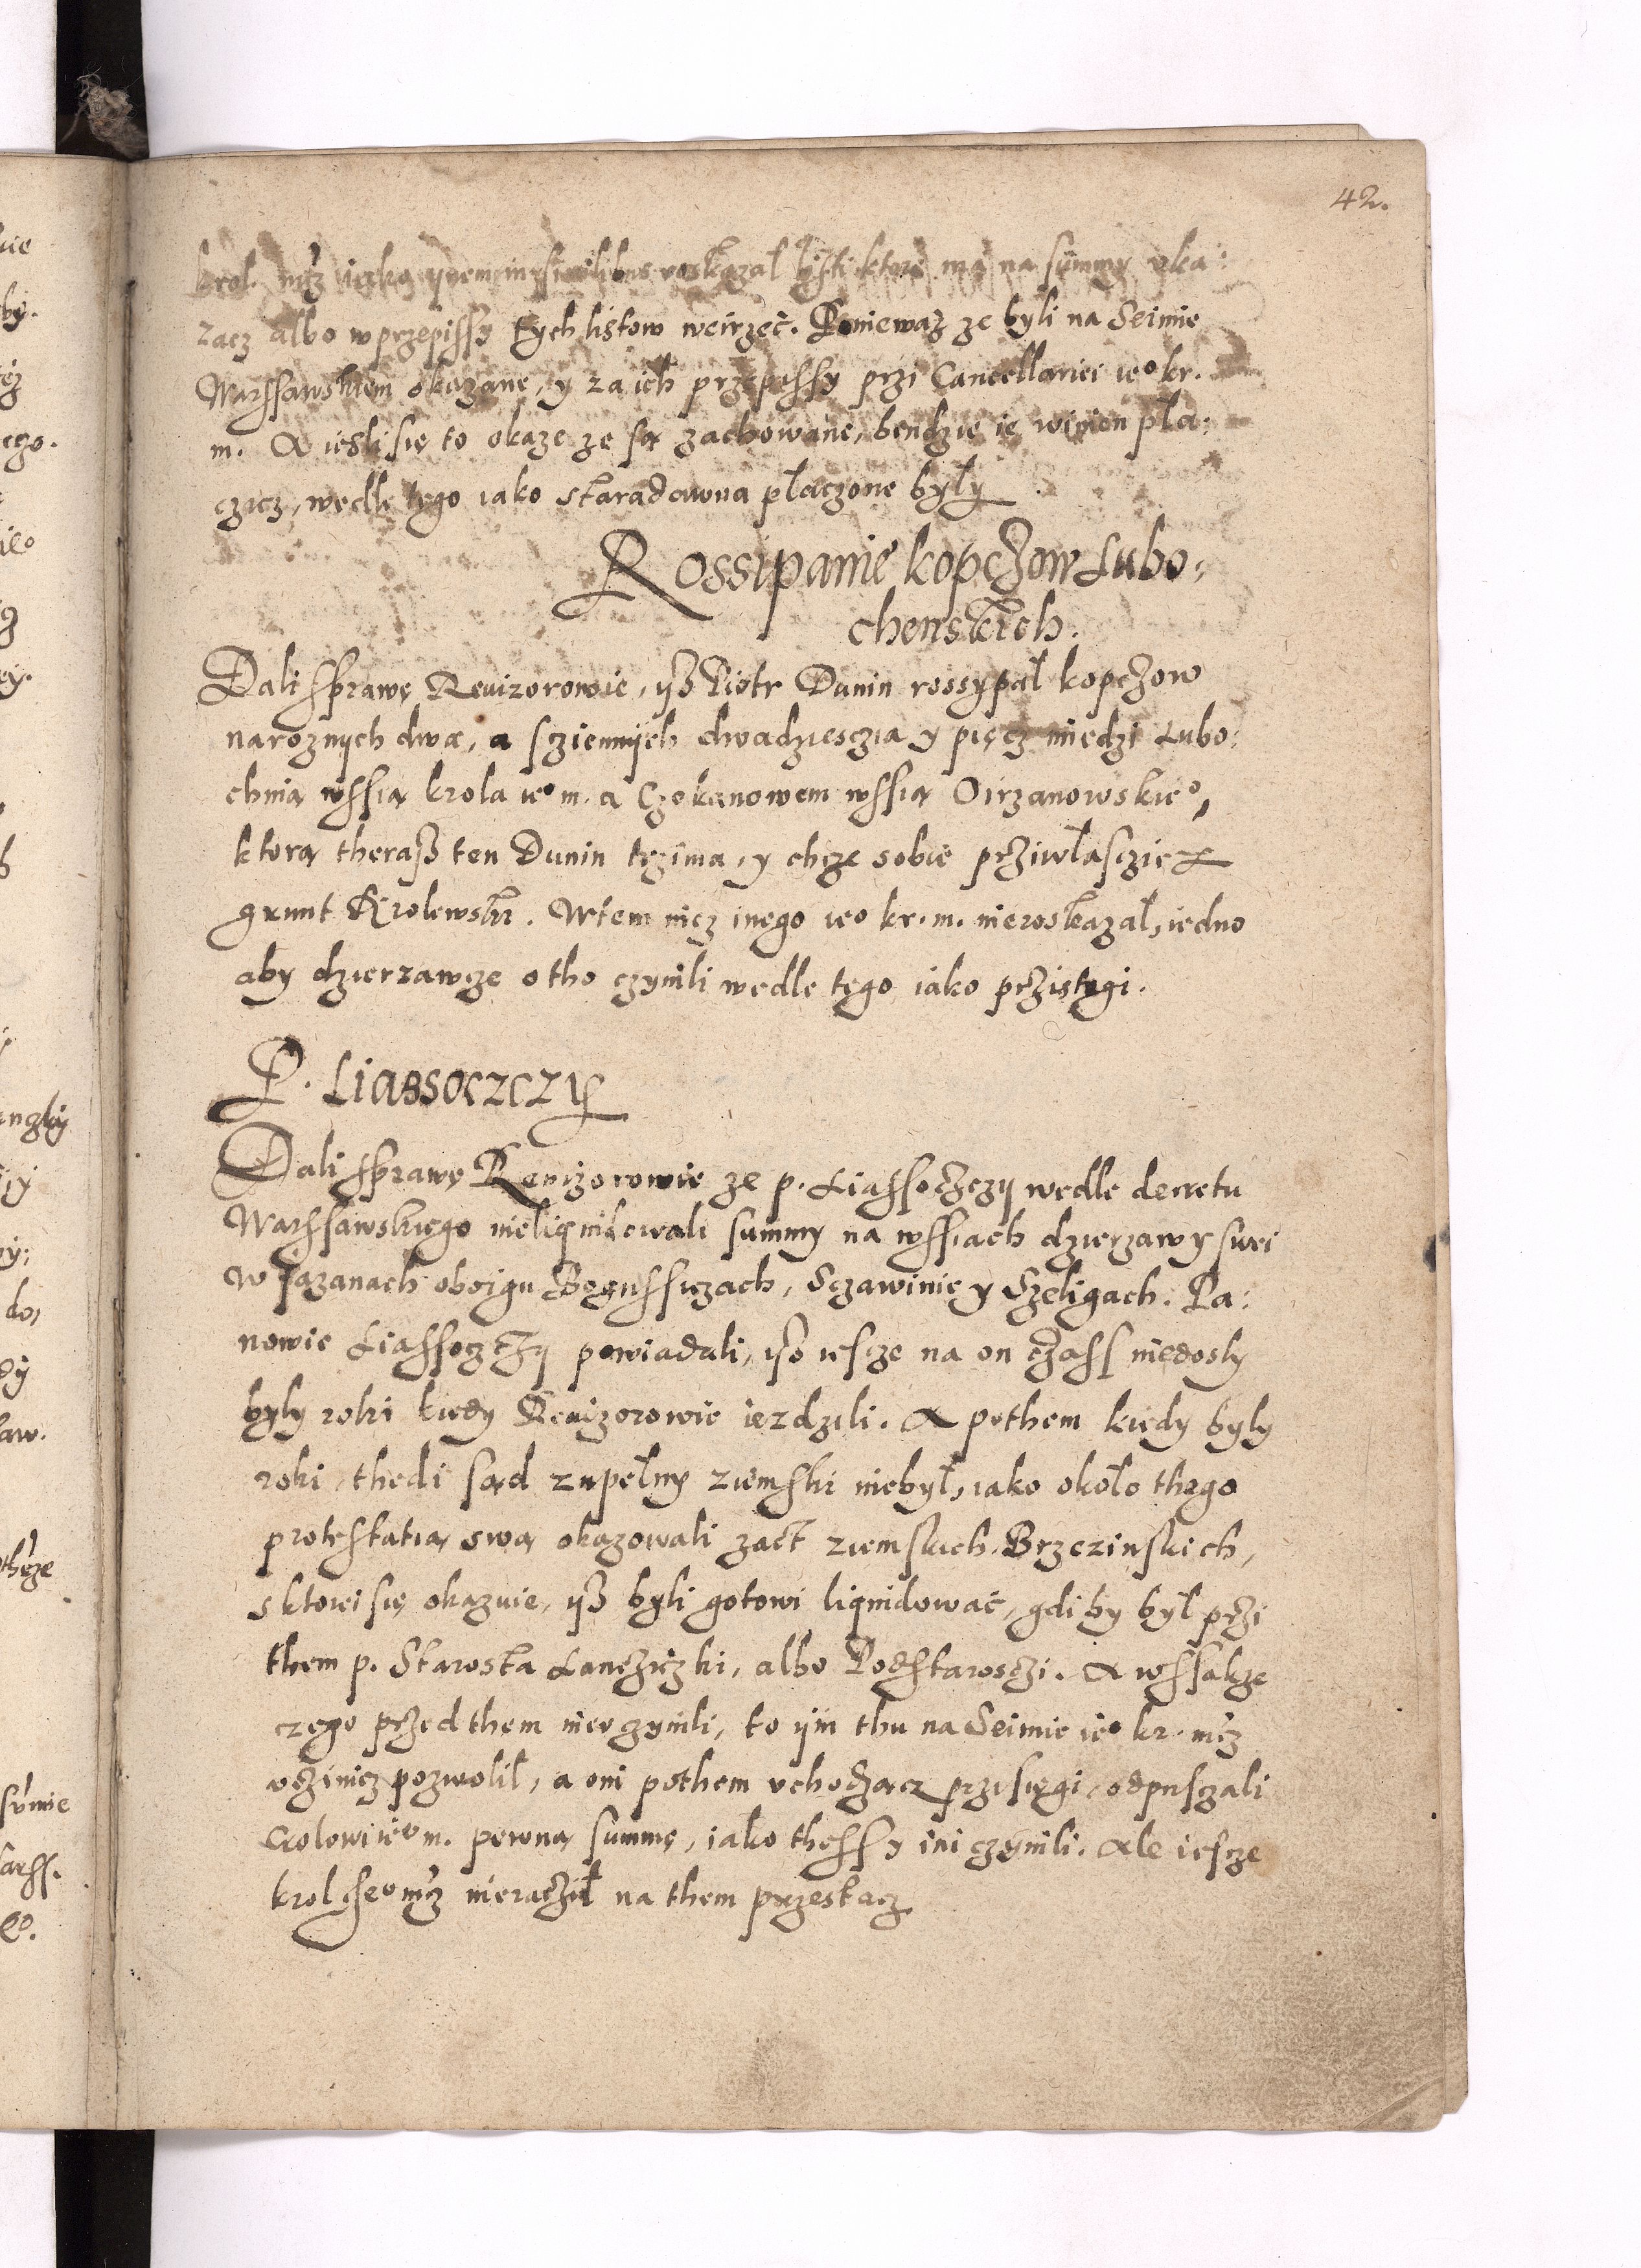 42.
krol. mcz iako in similibus roskazal listi ktore ma na summy oka:
zacz albo w przepissy tych listow weirzeć. Poniewaz ze byli na Seimie
Warssawskiem okazane, y za ich przepissy przi Cancellariei ieº kr.
m. A iesli się to okaze ze są zachowane, bendzie ie winien pła:
czicz, wedle tego iako staradawna płaczone były
Rossipanie kopczow Lubo:
chenskich.
Dali sprawę Reuizorowie, yß Piotr Dunin rossypał kopczow
naroznych dwa, a sciennych dwadziesczia y pięcz miedzi Lubo:
chnią wssią krola ieº m. a Czekanowem wssią Oirzanowskieº,
ktorą theraß ten Dunin trzima, y chcze sobie prziwłasczicz
grunt Krolewski. W tem nicz inego ieº kr. m. nieroskazał, iedno
aby dzierzawcze o tho czynili wedle tego iako przistęgi.
P. Liassoczczy
Dali sprawę Reuizorowie ze p. Liassoczczy wedle decretu
Warssawskiego nieliquidowali summy na wssiach dzierzawy swei
w Jazanach oboigu Bogussiczach, Sczawinie y Szeligach. Pa:
nowie Liassoczczy powiadali, yß iescze na on czass niedosly
były roki kiedy Reuizorowie iezdzili. A pothem kiedy były
roki, thedi sąd zupełny ziemski niebył, iako około thego
protestatią swą okazowali z act ziemskich Brzezinskich,
s ktorei się okazuie, yß byli gotowi liquidować, gdi by był przi
them p. Starosta Lancziczki, albo Podstarosczi. A wssakze
czego przed them nieuczynili, to ijm thu na Seimie ieº kr. mcz
uczinicz pozwolił, a oni pothem uchodzacz przisięgi, odpusczali
Krolowi ieº m. pewną summę, iako thessz ini czynili. Ale iescze
krol Jeº mcz nieracził na them przestacz.